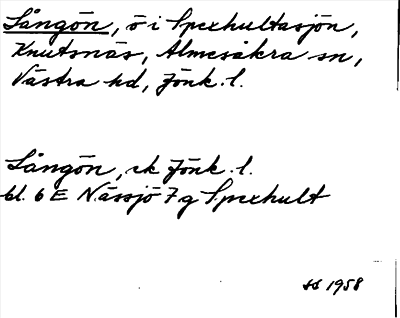 Långön, ö i Spexhultasjön,
Knutsnäs, Almesåkra sn,
Västra hd, Jönk. l.
Långön, ek Jönk. l.
bl. 6 E Nässjö 7 g Spexhult
1958